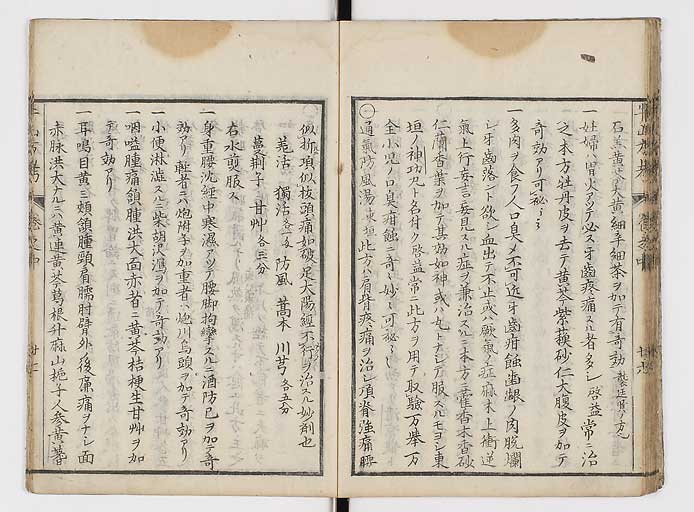 石膏黄芩黄連細辛細茶ヲ加テ有奇効
一妊婦ハ胃火アツテ必ス牙歯疼痛スル者多シ啓益常ニ治
之本方牡丹皮ヲ去テ黄芩紫蘇砂仁大腹皮ヲ加テ
奇効アリ可秘〻〻
一多肉ヲ食フ人口臭メ不可近牙歯疳蝕齒齦ノ肉脱爛
シ牙歯落ント欲シ血出テ不止或ハ厥氣ノ症麻木上衝逆
氣上行妄言妄見スル症ヲ兼治スルニ本方ニ藿香木香砂
仁蘭香葉ヲ加テ其効如神或ハ丸トナシテ服スルモヨシ東
垣ノ神功丸ト名付ク啓益常ニ此方ヲ用テ取験万挙万
全小児ノ口臭疳蝕ニ奇〻妙〻可秘〻〻
一通氣防風湯東垣此方ハ肩背疼痛ヲ治シ項脊強痛腰
似折項似抜頭痛如破足太陽經不行ヲ治スル妙剤也
羗活 獨活各一匁 防風 藁本 川芎各五分
蔓荊子 甘艸各三分
右水煎服ス
一身重腰沈經中寒濕アツテ腰脚拘攣スルニ酒防已ヲ加テ奇
効アリ軽者ニハ炮附子ヲ加重者ハ炮川烏頭ヲ加テ奇効アリ
一小便淋澁スルニ柴胡沢瀉ヲ加テ奇効アリ
一咽嗌腫痛頷腫洪大面赤者ニ黄芩桔梗生甘艸ヲ加
テ奇効アリ
一耳鳴目黄ニ頬頷腫頸肩臑肘臂外ノ後廉痛ヲナシ面
赤脉洪大ナルニハ黄連黄芩葛根升麻山梔子人参黄芪